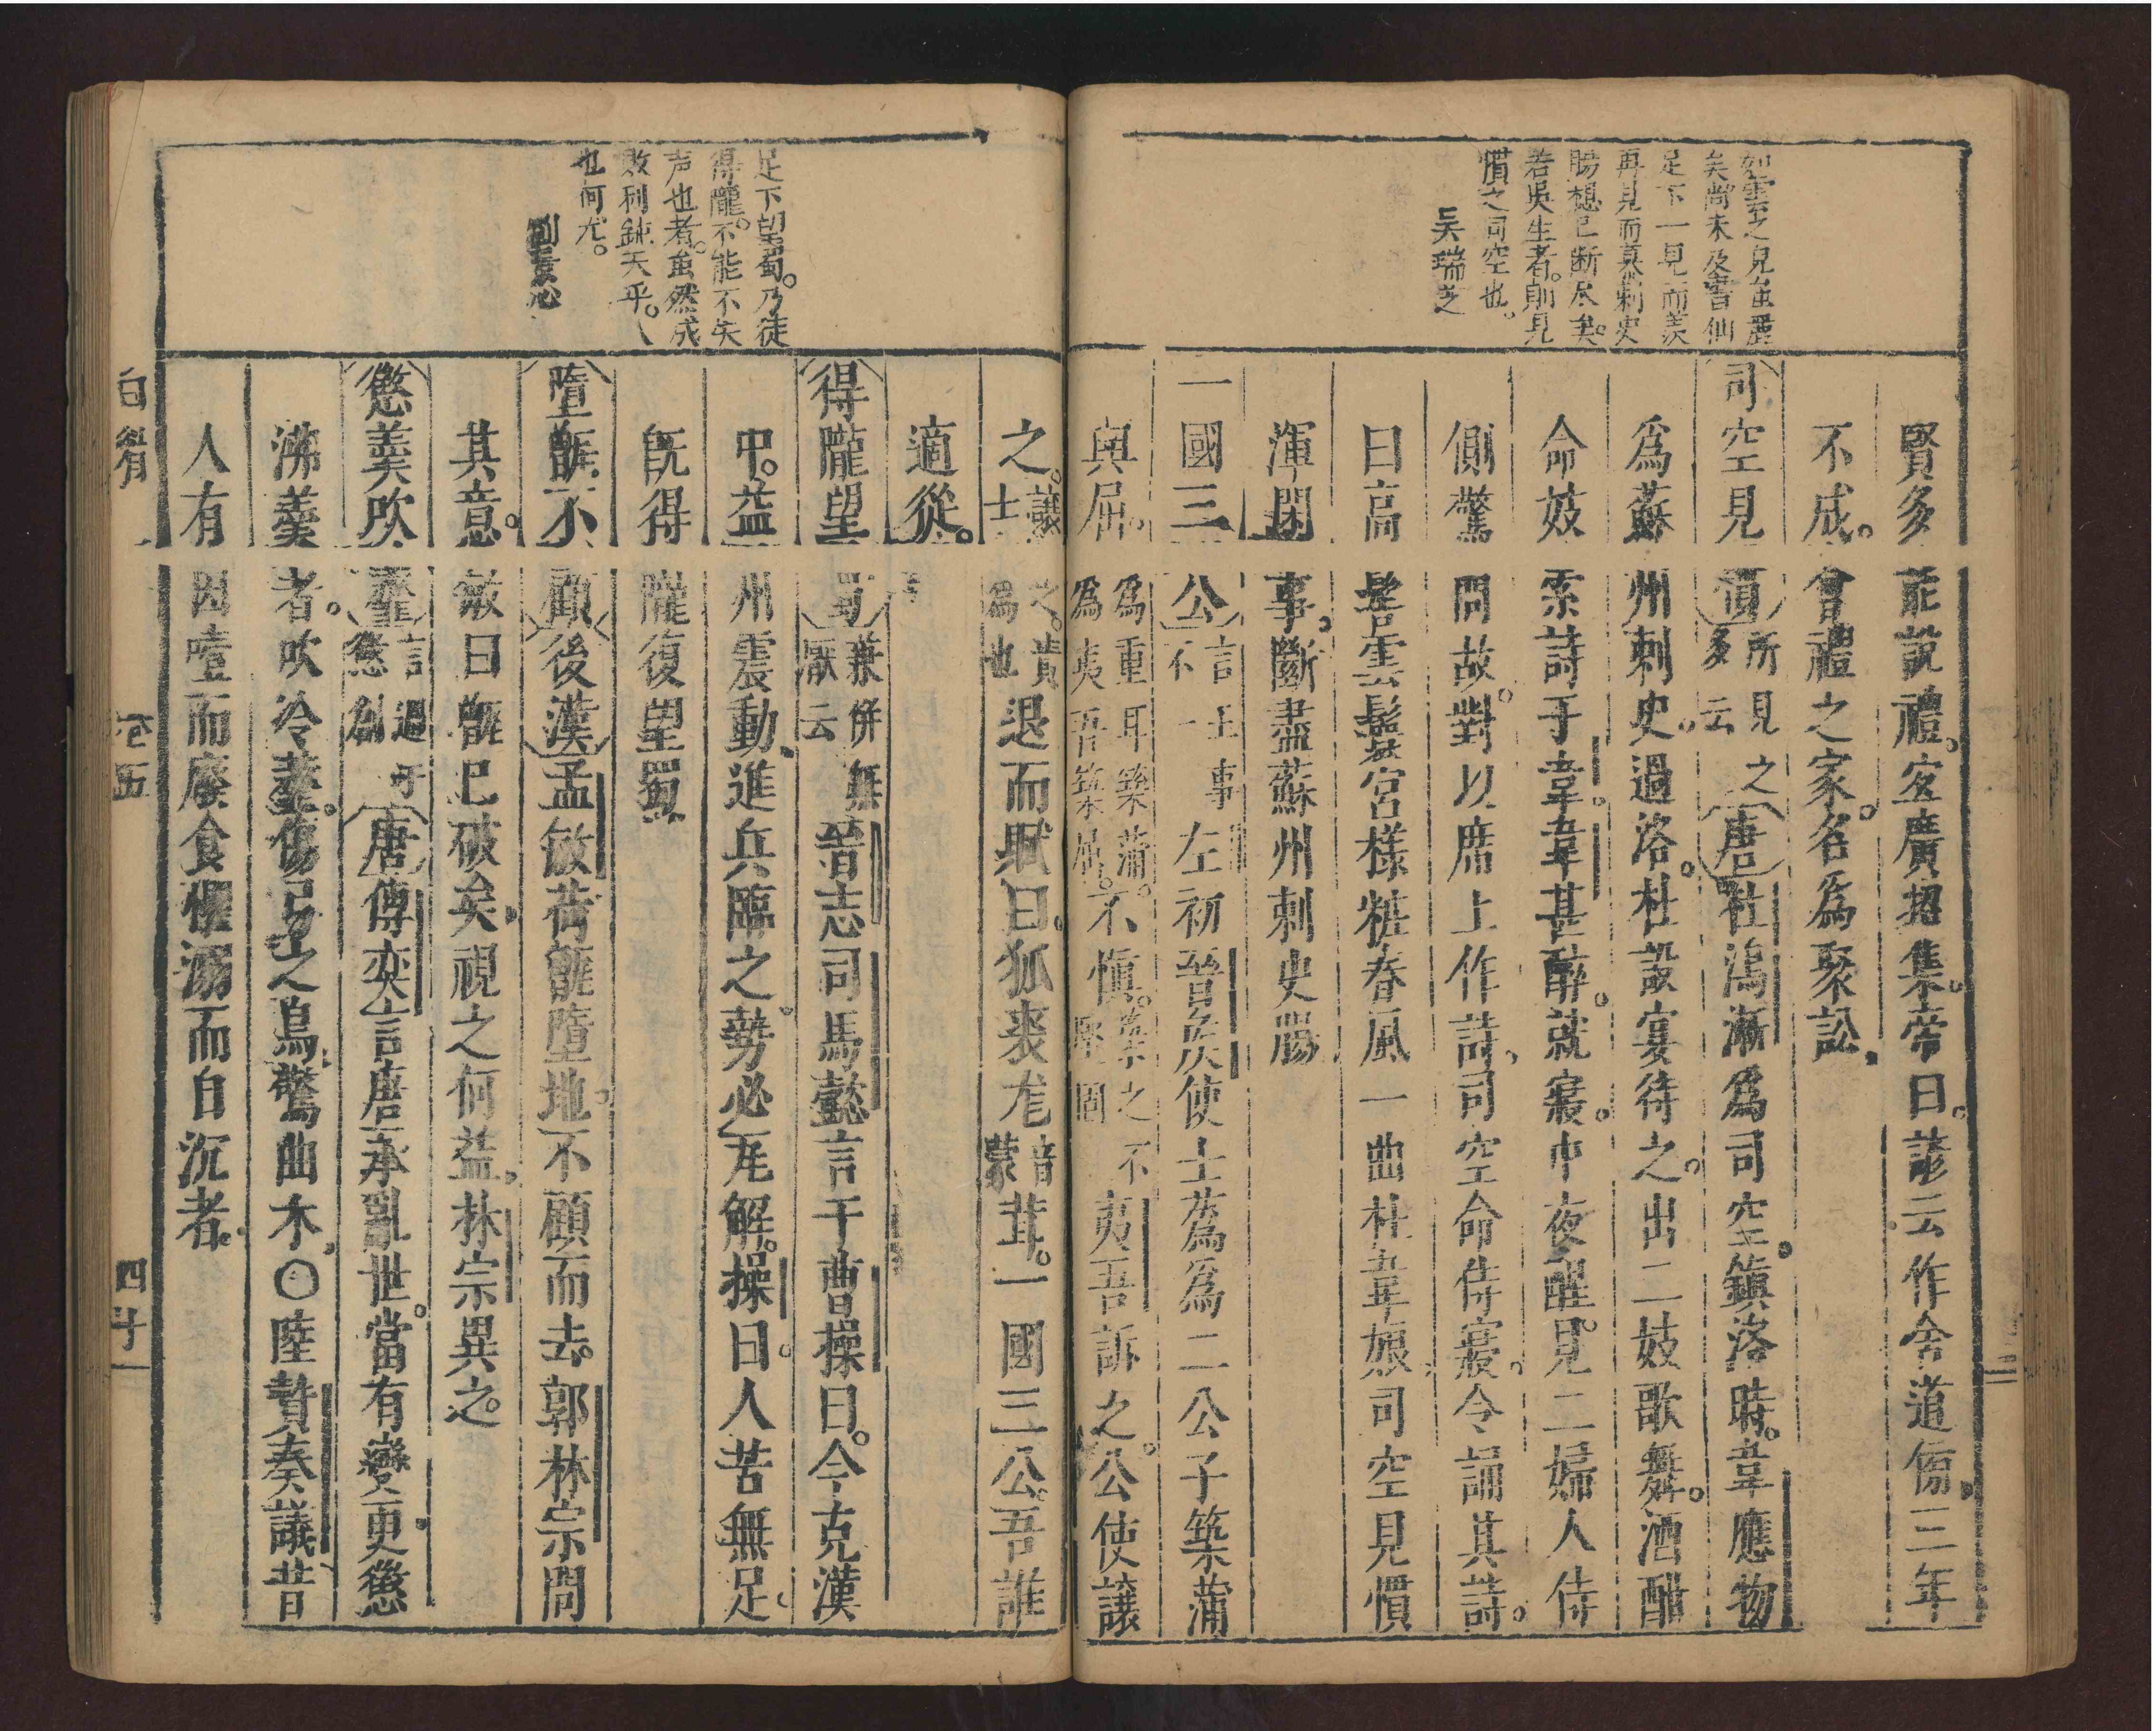 如雲之見虽麗
矣尚未及書仙
足下一見而羨
再見而慕刺史
腸想已断尽矣。
若吳生者。則見
慣之司空也。
吴瑞芝
賢多能說禮。宜廣招集。帝曰。諺云作舍道傍。三年
不成。會禮之家。名為聚訟。
司空見慣所見多云見之唐杜鴻漸為司空。鎮洛時。韋應物
為蘇州刺史。過洛。杜設宴待之。出二妓歌舞。酒酣
命妓索詩于韋。韋甚醉。就寢。中夜醒。見二婦人侍
側驚問故。對以席上作詩。司空命侍寢。令誦其詩。
曰高髻雲鬟宮樣粧春風一曲杜韋娘司空見慣
渾閑事。斷盡蘇州刺史腸
一國三公言不一主事左初晉侯使士蒍為二公子築蒲
與屈。為重耳築蒲。為夷吾築屈。不愼。築之不堅固夷吾訴之。公使讓
之。士蒍也退而賦曰。狐裘尨音蒙茸。一國三公。吾誰
適從。
足下望蜀。乃徒
得隴。不能不矣
声也者。虽然成
敗利鈍天乎。人
也何尤。
得隴望蜀兼併無厭云晉志司馬懿言于曹操曰。今克漢
中。益州震動。進兵臨之。勢必瓦解。操曰。人苦無足。
既得隴復望蜀
墮甑不顧後漢孟敏荷甑墮地。不顧而去。郭林宗問
其意。敏曰甑已破矣。視之何益。林宗異之。
懲羹吹虀言過于懲創唐傅奕言唐承亂世。當有變更懲
沸羹者。吹冷虀。傷弓之鳥。驚曲木。〇陸贄奏議昔
人有因噎而廢食懼溺而自沉者。
白眉
卷五
四十一